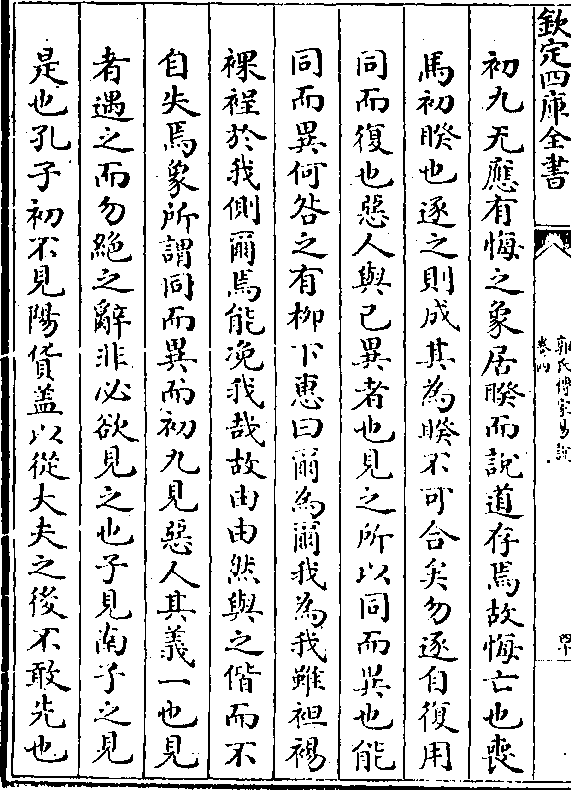 欽定四庫全書
郭氏傳家易說
卷四
初九无應有悔之象居睽而說道存焉故悔亡也喪
馬初睽也逐之則成其為睽不可合矣勿逐自復用
同而復也惡人與己異者也見之所以同而異也能
同而異何咎之有柳下惠曰爾為爾我為我雖袒裼
裸裎於我側爾焉能浼我哉故由由然與之偕而不
自失焉象所謂同而異而初九見惡人其義一也見
者遇之而勿絶之辭非必欲見之也子見南子之見
是也孔子初不見陽貨蓋以從大夫之後不敢先也